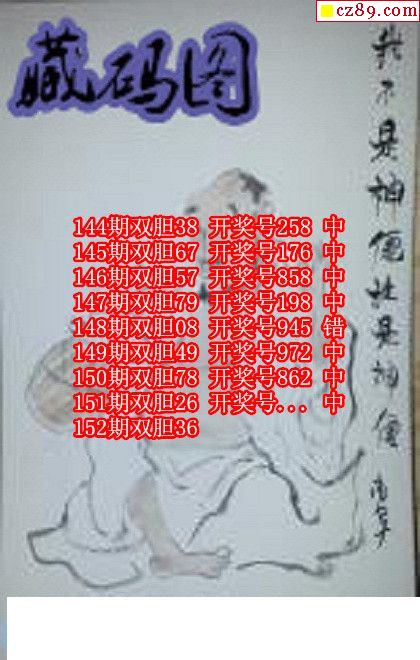 cz89.com
藏码图
我不是神但就是神僊
144期双胆38 开奖号258 中
145期双胆67 开奖号176 中
146期双胆57 开奖号858 中
147期双胆79 开奖号198 中
148期双胆08 开奖号945 错
149期双胆49 开奖号972 中
150期双胆78 开奖号862 中
151期双胆26 开奖号... 中
152期双胆36